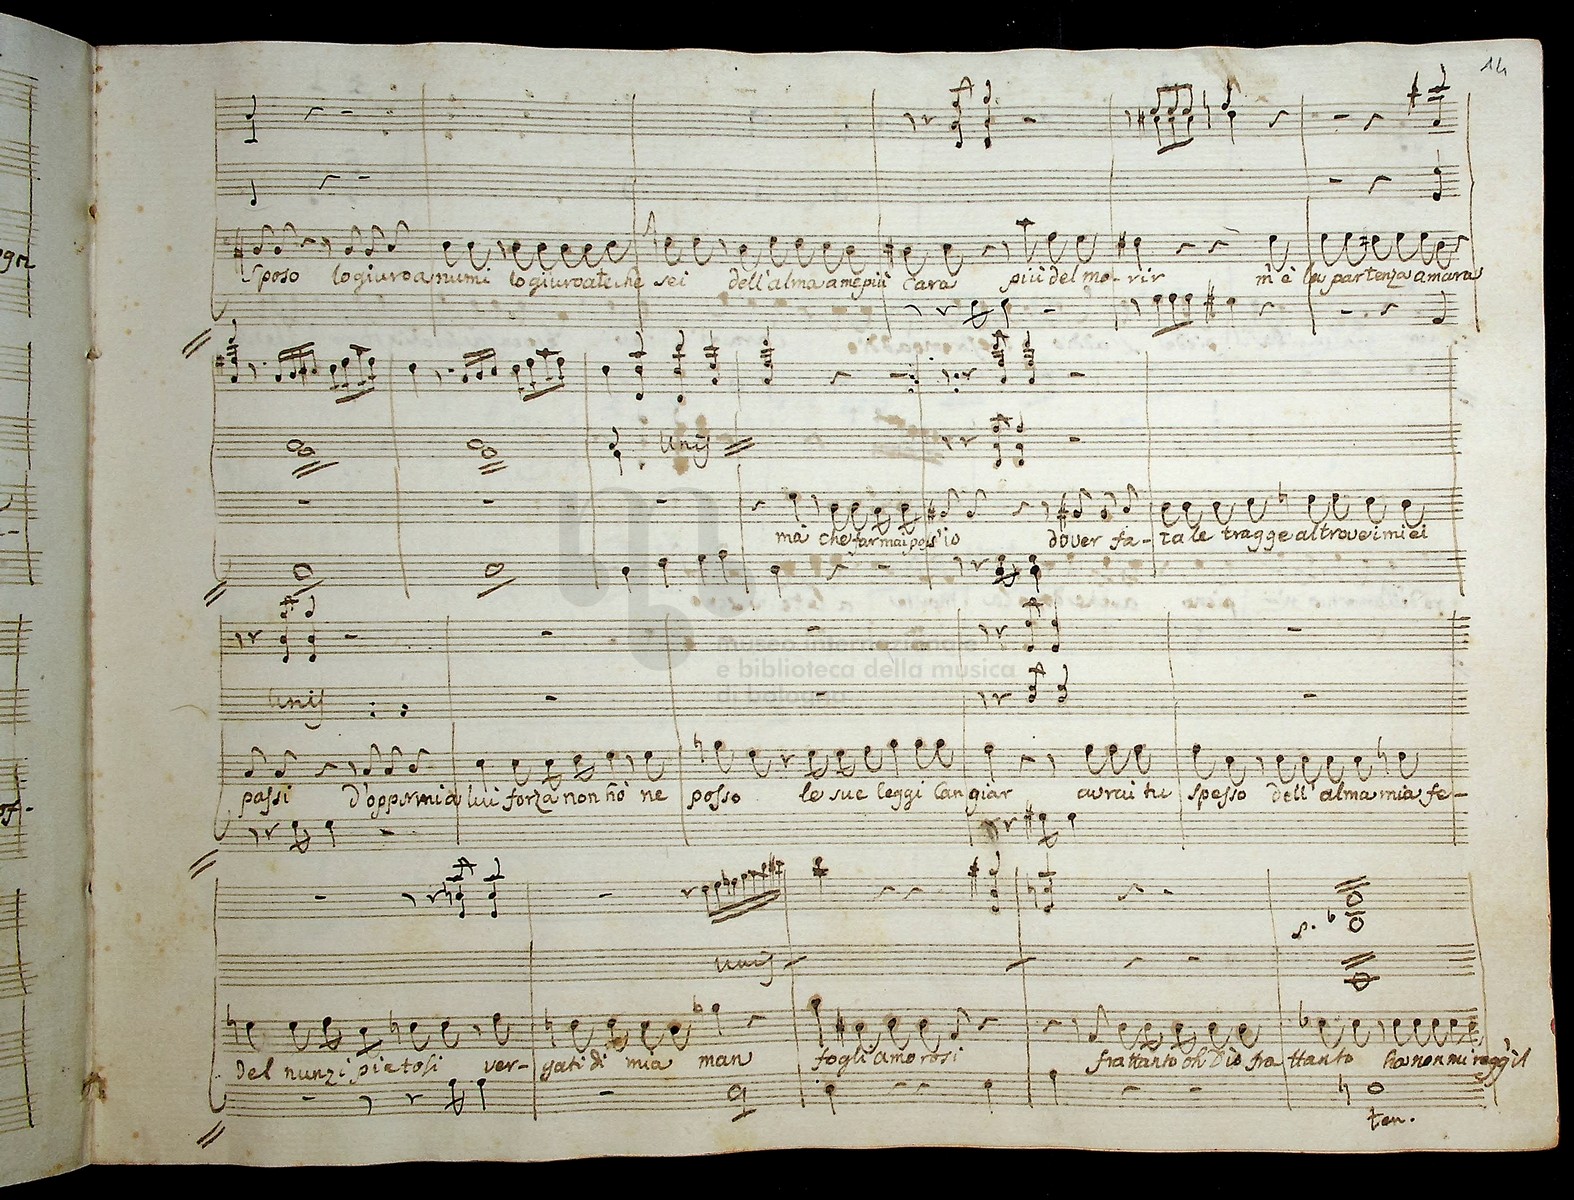 14
Sposo lo giuro a numi lo giuro a te che sei dell'alma a me più cara più del mo-rir m'è la partenza amara
Unis
mà che far mai poss'io dover fa-tale tragge altrove i miei
Unis
passi d'oppormi a lui forza non hò ne posso le sue leggi cangiar avrai tu spesso dell'alma mia fe-
museo internazionale
e biblioteca della musica
di bologna
p.
unis
del nunzi pietosi ver-gati di mia man fogli amorosi frattanto oh Dio fra ttanto
ten.